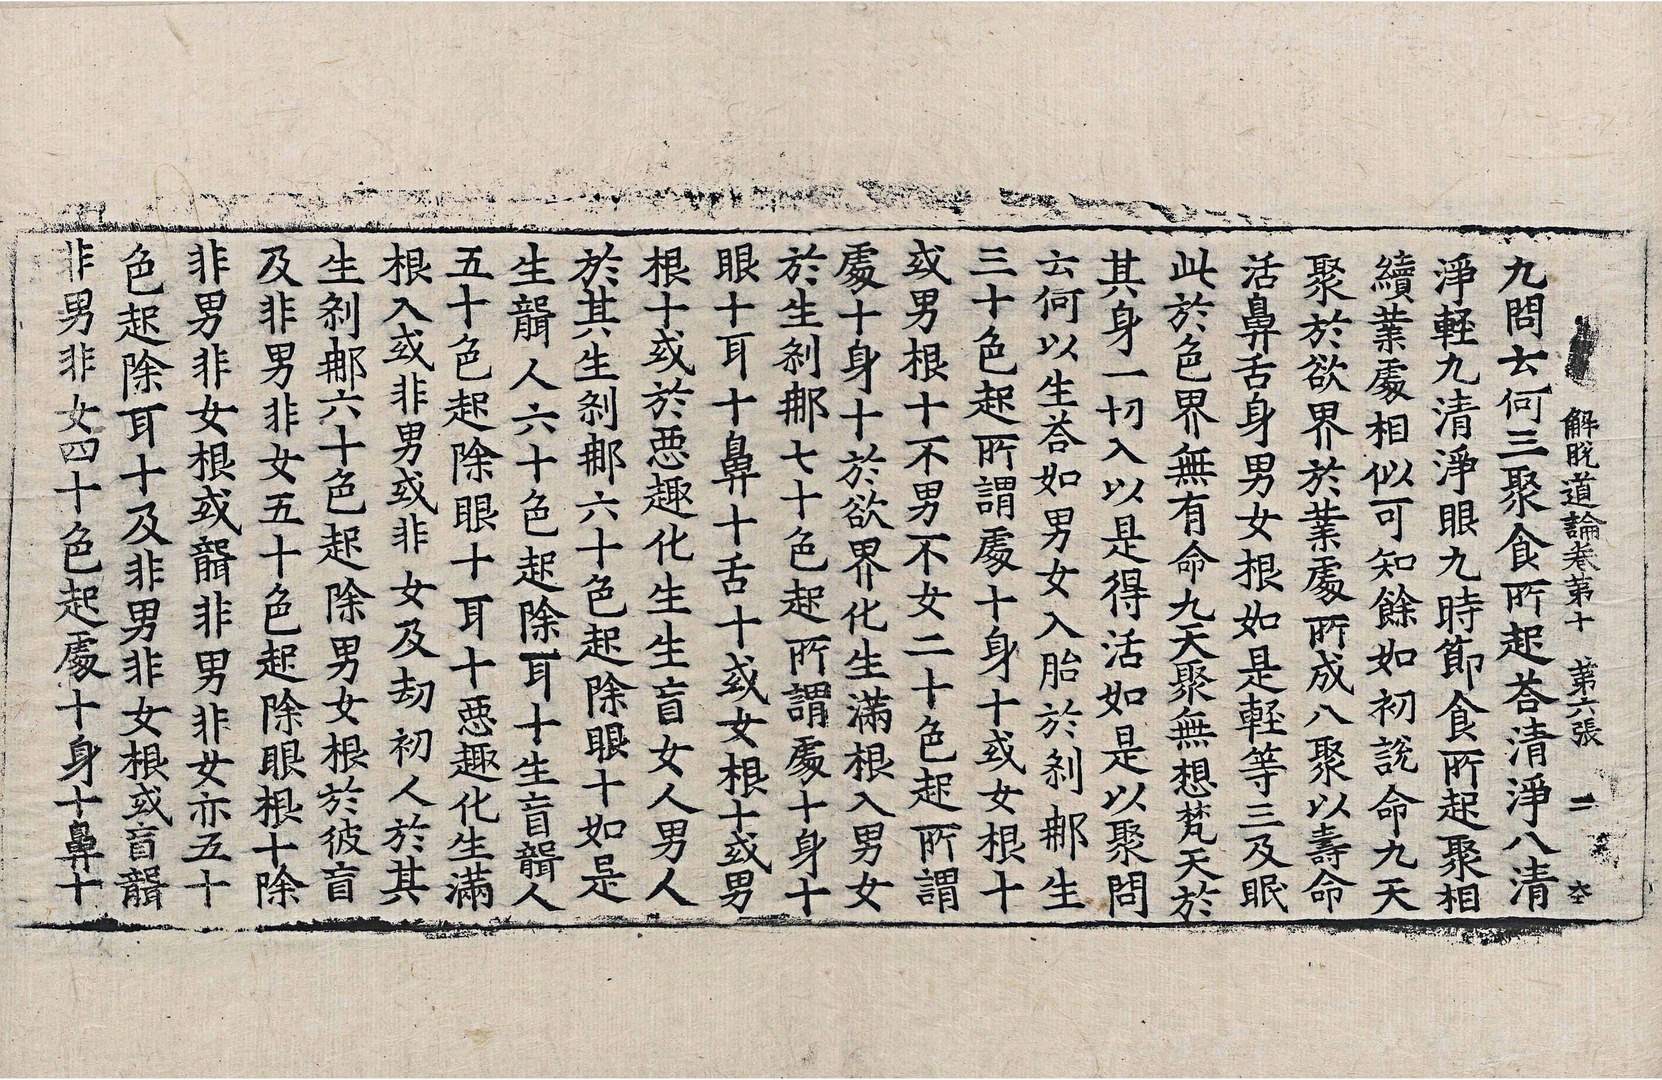 解脫道論卷第十 第六張 二
九問云何三聚食所起荅清淨八清
淨軽九清淨眼九時節食所起聚相
續業處相似可知餘如初說命九天
聚於欲界於業處所成八聚以壽命
活鼻舌身男女根如是軽等三及眠
此於色界無有命九天聚無想梵天於
其身一切入以是得活如是以聚問
云何以生荅如男女入胎於刹那生
三十色起所謂處十身十或女根十
或男根十不男不女二十色起所謂
處十身十於欲界化生滿根入男女
於生刹那七十色起所謂處十身十
眼十耳十鼻十舌十或女根十或男
根十或於惡趣化生生盲女人男人
於其生刹那六十色起除眼十如是
生聾人六十色起除耳十生盲聾人
五十色起除眼十耳十惡趣化生滿
根入或非男或非女及劫初人於其
生刹那六十色起除男女根於彼盲
及非男非女五十色起除眼根十除
非男非女根或聾非男非女亦五十
色起除耳十及非男非女根或盲聾
非男非女四十色起處十身十鼻十